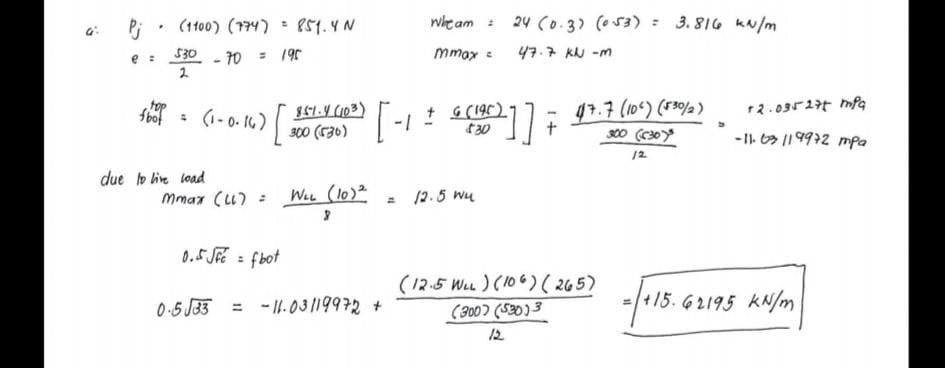 a. Pj = (1100)(774) = 851.4 N    Wbeam = 24 (0.3) (0.53) = 3.816 kN/m
e = 530/2 - 70 = 195    Mmax = 47.7 kN-m
f top bot = (1-0.16) [ 851.4(10³) / 300 (530) [ -1 ± 6(195) / 530 ] ] ∓ 47.7 (10⁶) (530/2) / ( 300 (530)³ / 12 ) = +2.035275 mPa
-11.03119972 mPa
due to live load
Mmax (LL) = WLL (10)² / 8 = 12.5 WLL
0.5√fc' = fbot
0.5√33 = -11.03119972 + (12.5 WLL)(10⁶)(265) / ( (300)(530)³ / 12 ) = +15.62195 kN/m